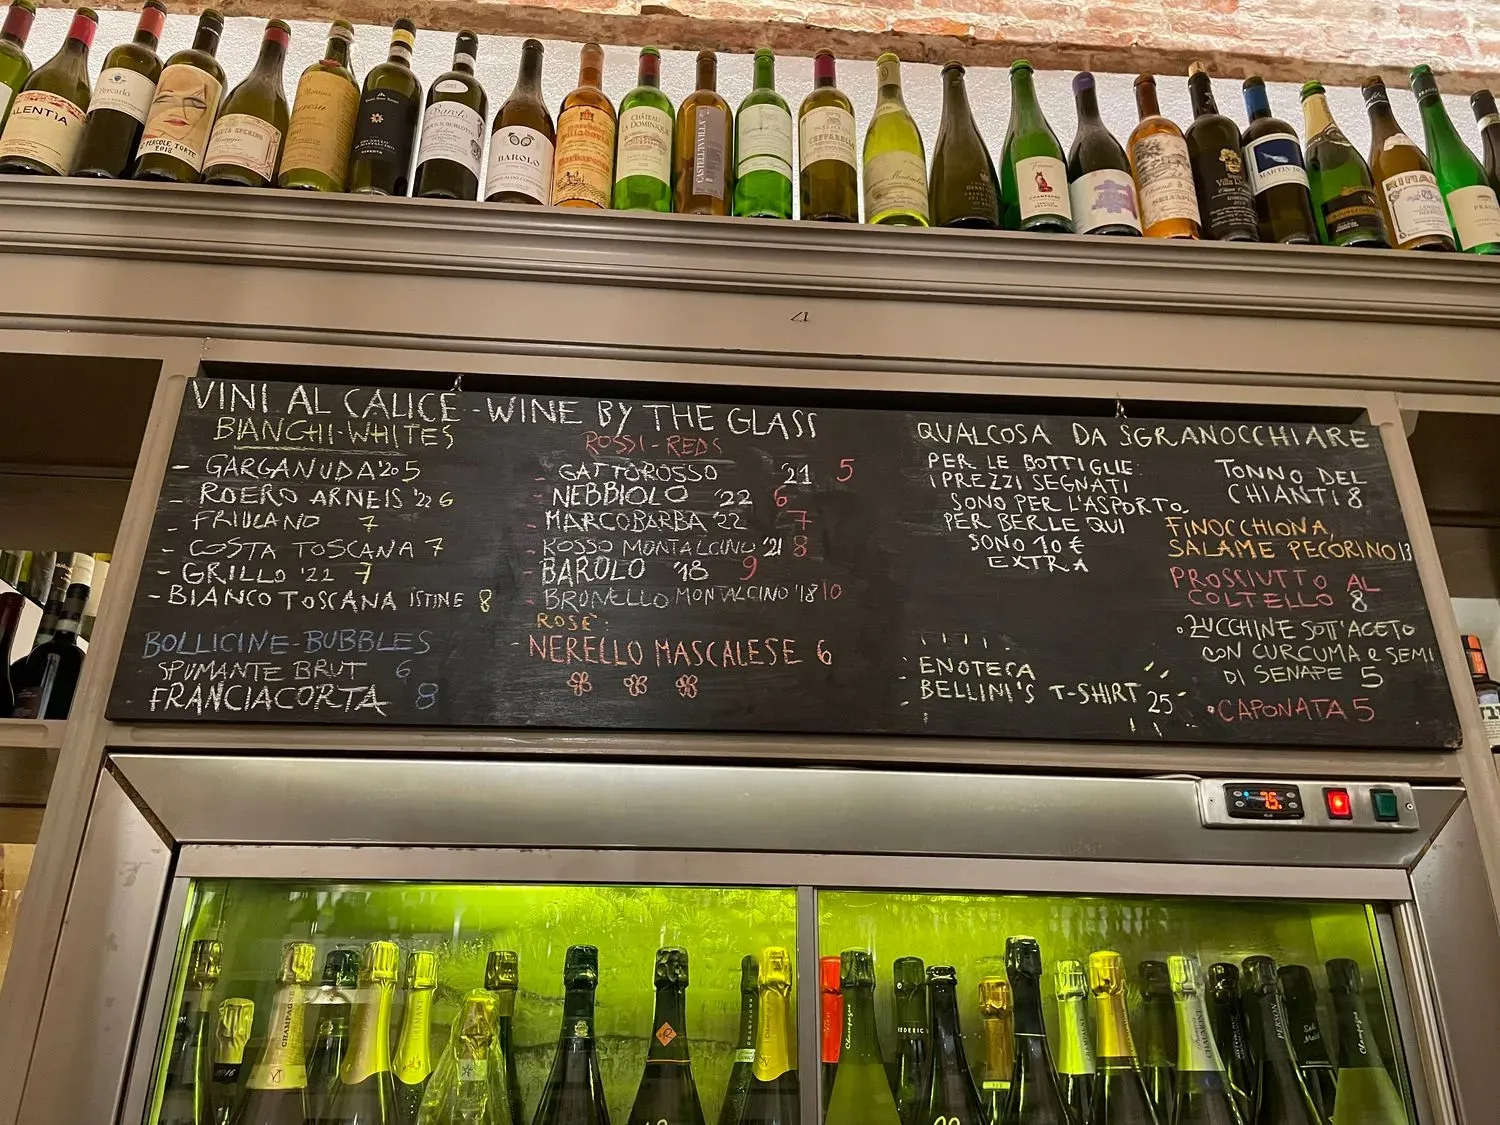 VALENTIA
Percarlo
LE PERGOLE TORTE
2018
Barolo
BAROLO
Barbaresco
CHÂTEAU
LA DOMINIQUE
CASTELLINVILLA
CEPPARELLO
Montrachet
CHAMPAGNE
MARTIN
RINALDI
VINI AL CALICE - WINE BY THE GLASS
BIANCHI-WHITES
- GARGANUDA '20 5
- ROERO ARNEIS '22 6
- FRIULANO 7
- COSTA TOSCANA 7
- GRILLO '22 7
- BIANCO TOSCANA ISTINE 8
BOLLICINE-BUBBLES
SPUMANTE BRUT 6
FRANCIACORTA 8
ROSSI-REDS
- GATTOROSSO '21 5
- NEBBIOLO '22 6
- MARCOBARBA '22 7
- ROSSO MONTALCINO '21 8
- BAROLO '18 9
- BRUNELLO MONTALCINO '18 10
ROSÈ:
- NERELLO MASCALESE 6
QUALCOSA DA SGRANOCCHIARE
PER LE BOTTIGLIE:
I PREZZI SEGNATI
SONO PER L'ASPORTO
PER BERLE QUI
SONO 10 €
EXTRA
ENOTECA
BELLINI'S T-SHIRT 25
TONNO DEL
CHIANTI 8
FINOCCHIONA,
SALAME PECORINO 13
PROSCIUTTO AL
COLTELLO 8
• ZUCCHINE SOTT'ACETO
CON CURCUMA e SEMI
DI SENAPE 5
• CAPONATA 5
7.5
CHAMPAGNE
2016
Champagne
Champagne